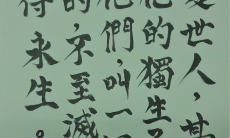 愛世人，甚
他的獨生子
他們，叫一
的，不至滅
得永生。